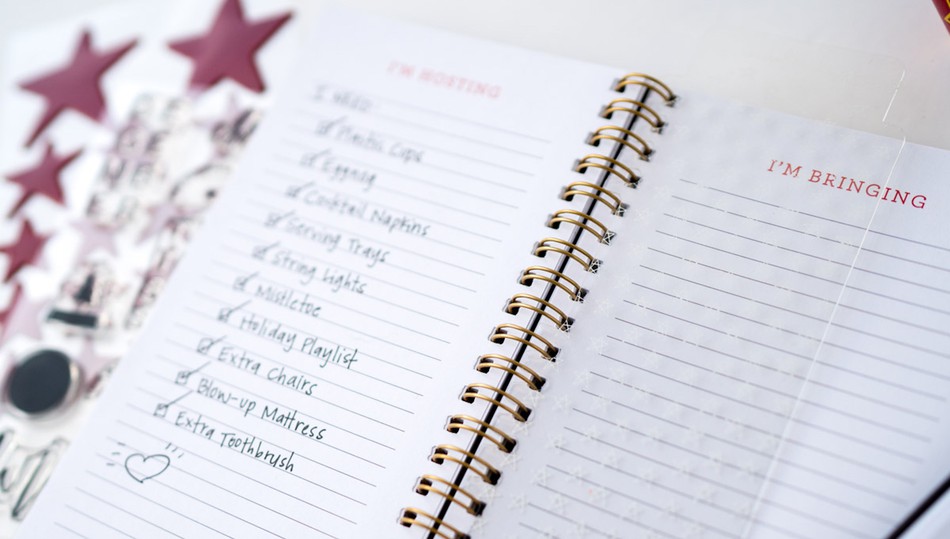 I'M HOSTING
I NEED
Plastic Cups
Eggnog
Cocktail Napkins
Serving Trays
String Lights
Mistletoe
Holiday Playlist
Extra Chairs
Blow-up Mattress
Extra Toothbrush
I'M BRINGING